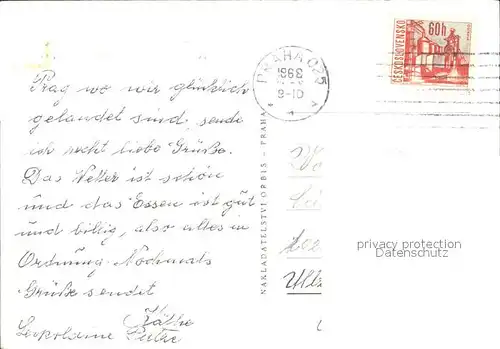 Prag wo wir glücklich
gelandet sind, sende
ich recht liebe Grüße.
Das Wetter ist schön
und das Essen ist gut
und billig, also alles in
Ordnung. Nochmals
Grüße sendet
Käthe
Leopoldine
NAKLADATELSTVÍ ORBIS - PRAHA
PRAHA 025
1968
9-10
ČESKOSLOVENSKO
60h
privacy protection
Datenschutz